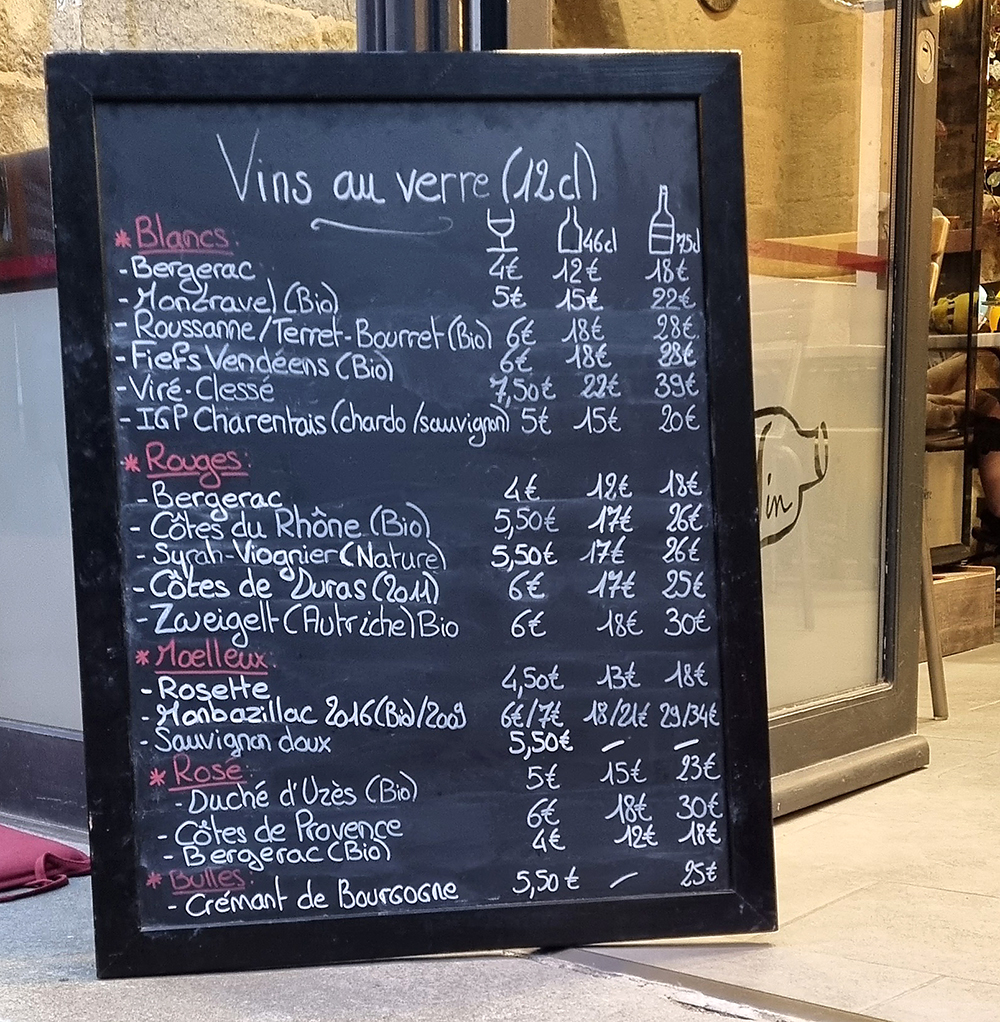 Vins au verre (12cl)
* Blancs: 46cl 75cl
- Bergerac 4€ 12€ 18€
- Montravel (Bio) 5€ 15€ 22€
- Roussanne/Terret-Bourret (Bio) 6€ 18€ 28€
- Fiefs Vendéens (Bio) 6€ 18€ 28€
- Viré-Clessé 7,50€ 22€ 39€
- IGP Charentais (chardo/sauvignon) 5€ 15€ 20€
* Rouges:
- Bergerac 4€ 12€ 18€
- Côtes du Rhône (Bio) 5,50€ 17€ 26€
- Syrah-Viognier (Nature) 5,50€ 17€ 26€
- Côtes de Duras (2011) 6€ 17€ 25€
- Zweigelt (Autriche) Bio 6€ 18€ 30€
* Moelleux:
- Rosette 4,50€ 13€ 18€
- Monbazillac 2016 (Bio)/2009 6€/7€ 18/21€ 29/34€
- Sauvignon doux 5,50€ – –
* Rosé:
- Duché d'Uzès (Bio) 5€ 15€ 23€
- Côtes de Provence 6€ 18€ 30€
- Bergerac (Bio) 4€ 12€ 18€
* Bulles:
- Crémant de Bourgogne 5,50€ – 25€
in